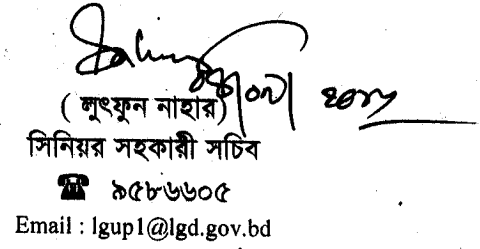 ( লুৎফুন নাহার)
সিনিয়র সহকারী সচিব
☎ ৯৫৮৬৬০৫
Email : lgup1@lgd.gov.bd